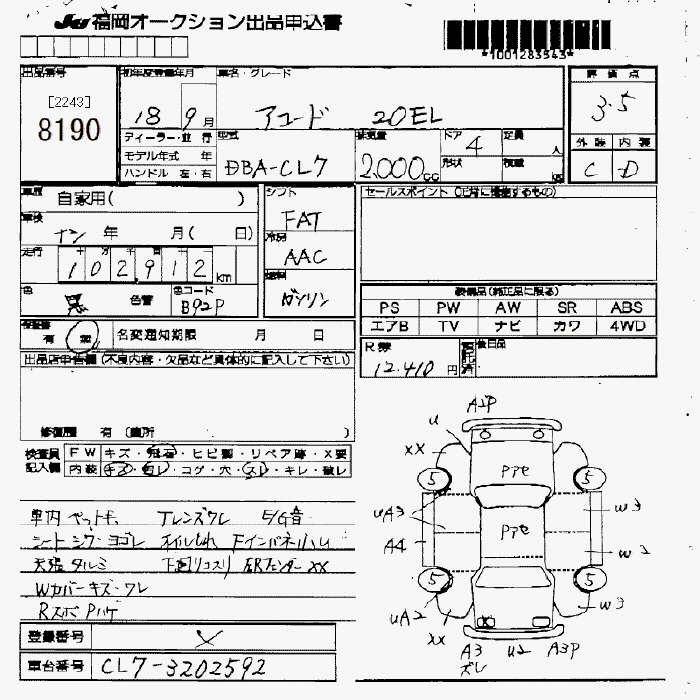 JU 福岡オークション出品申込書
*1001283543*
出品番号
[2243]
8190
初年度登録年月
18 9月
車名・グレード
アコード 20EL
評価点
3.5
外装 内装
C D
ディーラー・並行
モデル年式 年
ハンドル 左・右
型式
DBA-CL7
排気量
2,000cc
ドア
4
形状
定員
人
積載
車歴
自家用( )
車検
ナシ 年 月( 日)
走行
十 万 千 百 十
102,912km
色
黒
色替
色コード
B92P
シフト
FAT
冷房
AAC
燃料
ガソリン
セールスポイント (正常に機能するもの)
装備品(純正品に限る)
PS PW AW SR ABS
エアB TV ナビ カワ 4WD
有 無
名変通知期限 月 日
R券
12,410円
後日品
出品店申告欄(不良内容・欠品など具体的に記入して下さい)
修復歴 有 (箇所 )
検査員記入欄
FW キズ・飛石・ヒビ割・リペア跡・X要
内装 キズ・コゲ・穴・スレ・キレ・破レ
車内ペット毛 Tレンズワレ E/G音
シートシワ・ヨゴレ オイルもれ Fインパネハム
天張タルミ 下回リコスリ xx
Wカバーキズ・ワレ
RスポPハゲ
登録番号
車台番号 CL7-3202592
A2P
u
xx
5 5
Pアセ
Pアセ
uA3
A4
w3
w2
5 5
uA2
w3
xx
x
A3 u2 A3P
ズレ